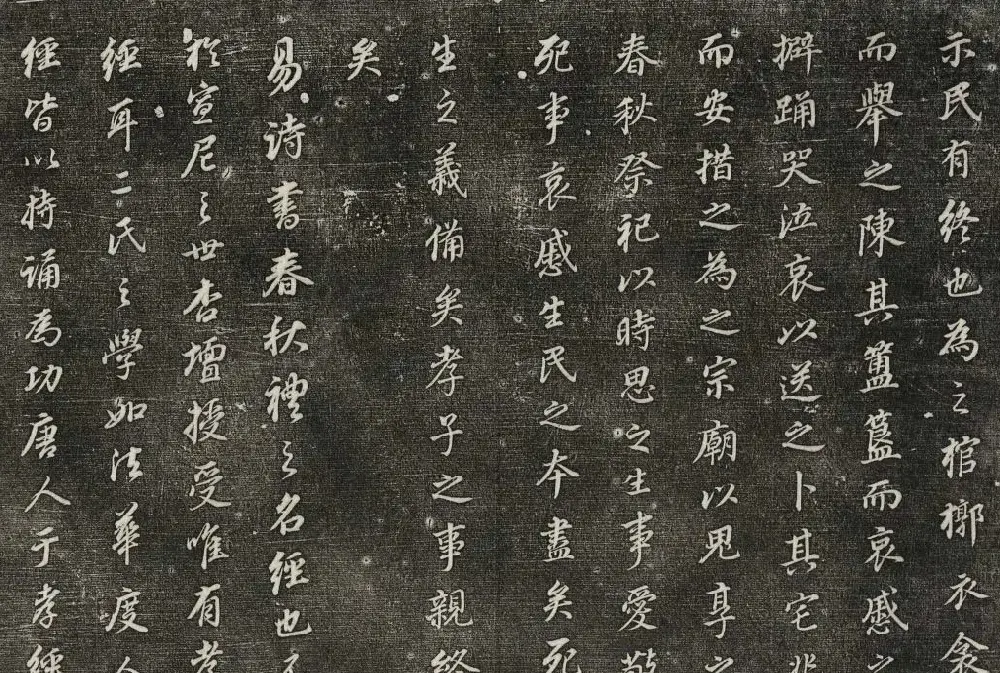 示民有終也為之棺槨衣衾
而舉之陳其簠簋而哀慼之
擗踊哭泣哀以送之卜其宅兆
而安措之為之宗廟以鬼享之
春秋祭祀以時思之生事愛敬
死事哀慼生民之本盡矣死
生之義備矣孝子之事親終
矣
易詩書春秋禮之名經也
於宣尼之世杏壇授受唯有孝
經耳二氏之學如法華度人
經皆以持誦為功唐人于孝經